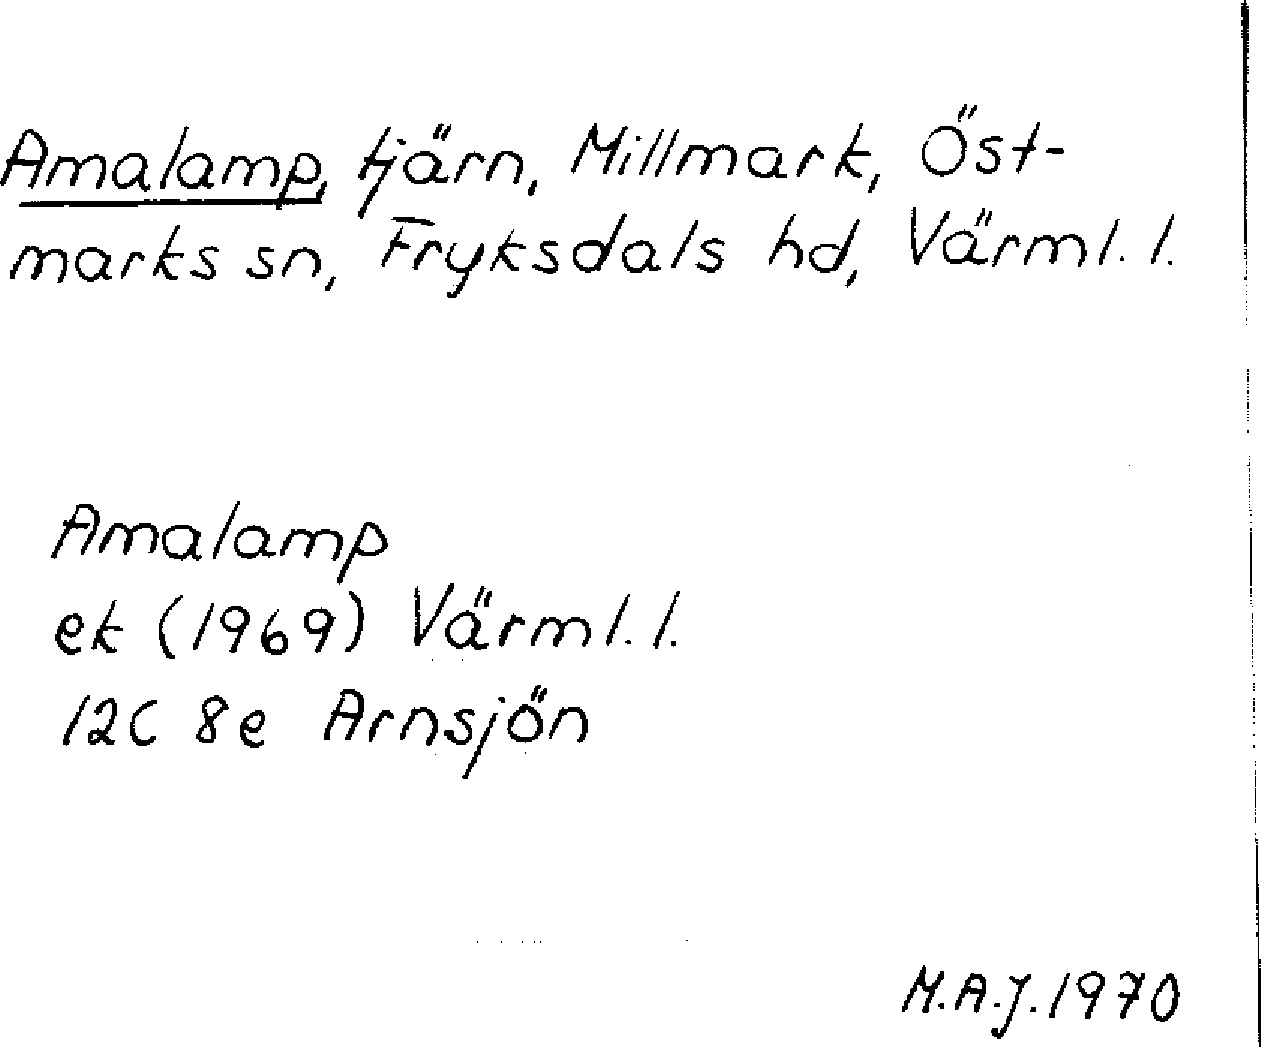 Amalamp, tjärn, Millmark, Öst-
marks sn, Fryksdals hd, Värml. l.
Amalamp
ek (1969) Värml. l.
12C 8e Arnsjön
M.A.J. 1970